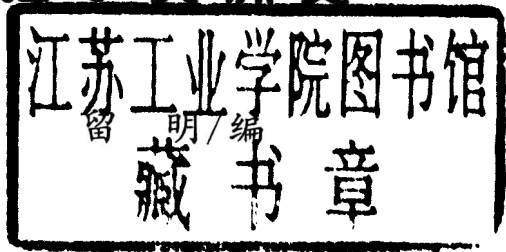 江苏工业学院图书馆
留 明/编
藏书章